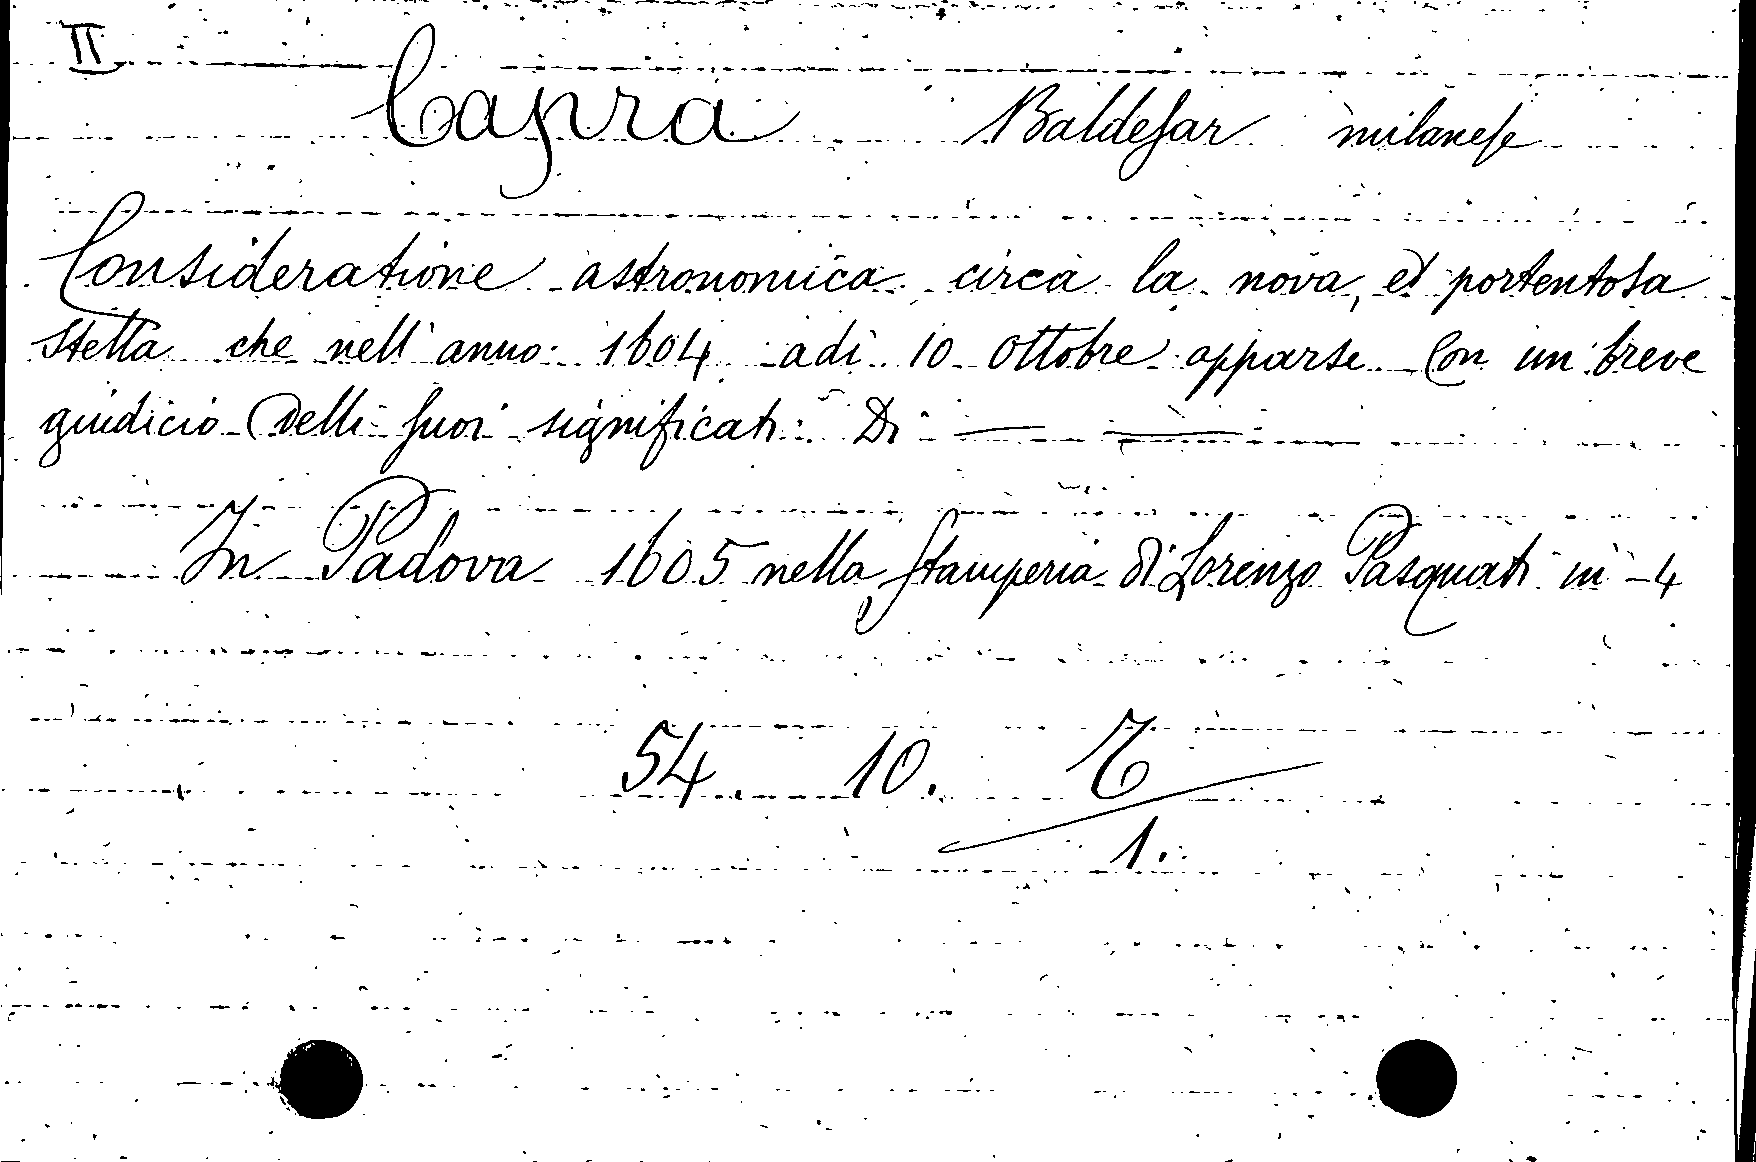 II
Capra Baldesar milanese
Consideratione astronomica circa la nova, et portentosa
stella che nell'anno 1604 adi 10 ottobre apparse. Con un breve
giudicio delli suoi significati. Di — —
In Padova 1605 nella stamperia di Lorenzo Pasquati in-4
54. 10. 6
1.